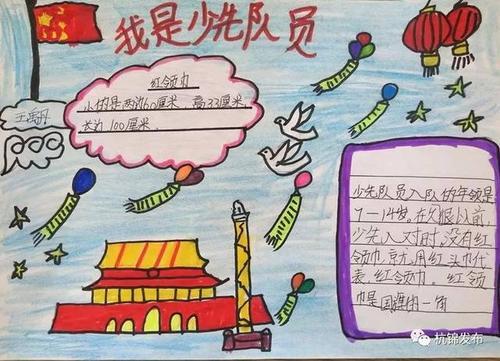 我是少先队员
红领巾
小的是两边60厘米，高33厘米，
长边100厘米.
少先队员入队的年领是
7—14岁。在很久以前,
少先入对时,没有红
领巾,就用红头巾代
表,红领巾。红领
巾是国旗的一角
杭锦发布